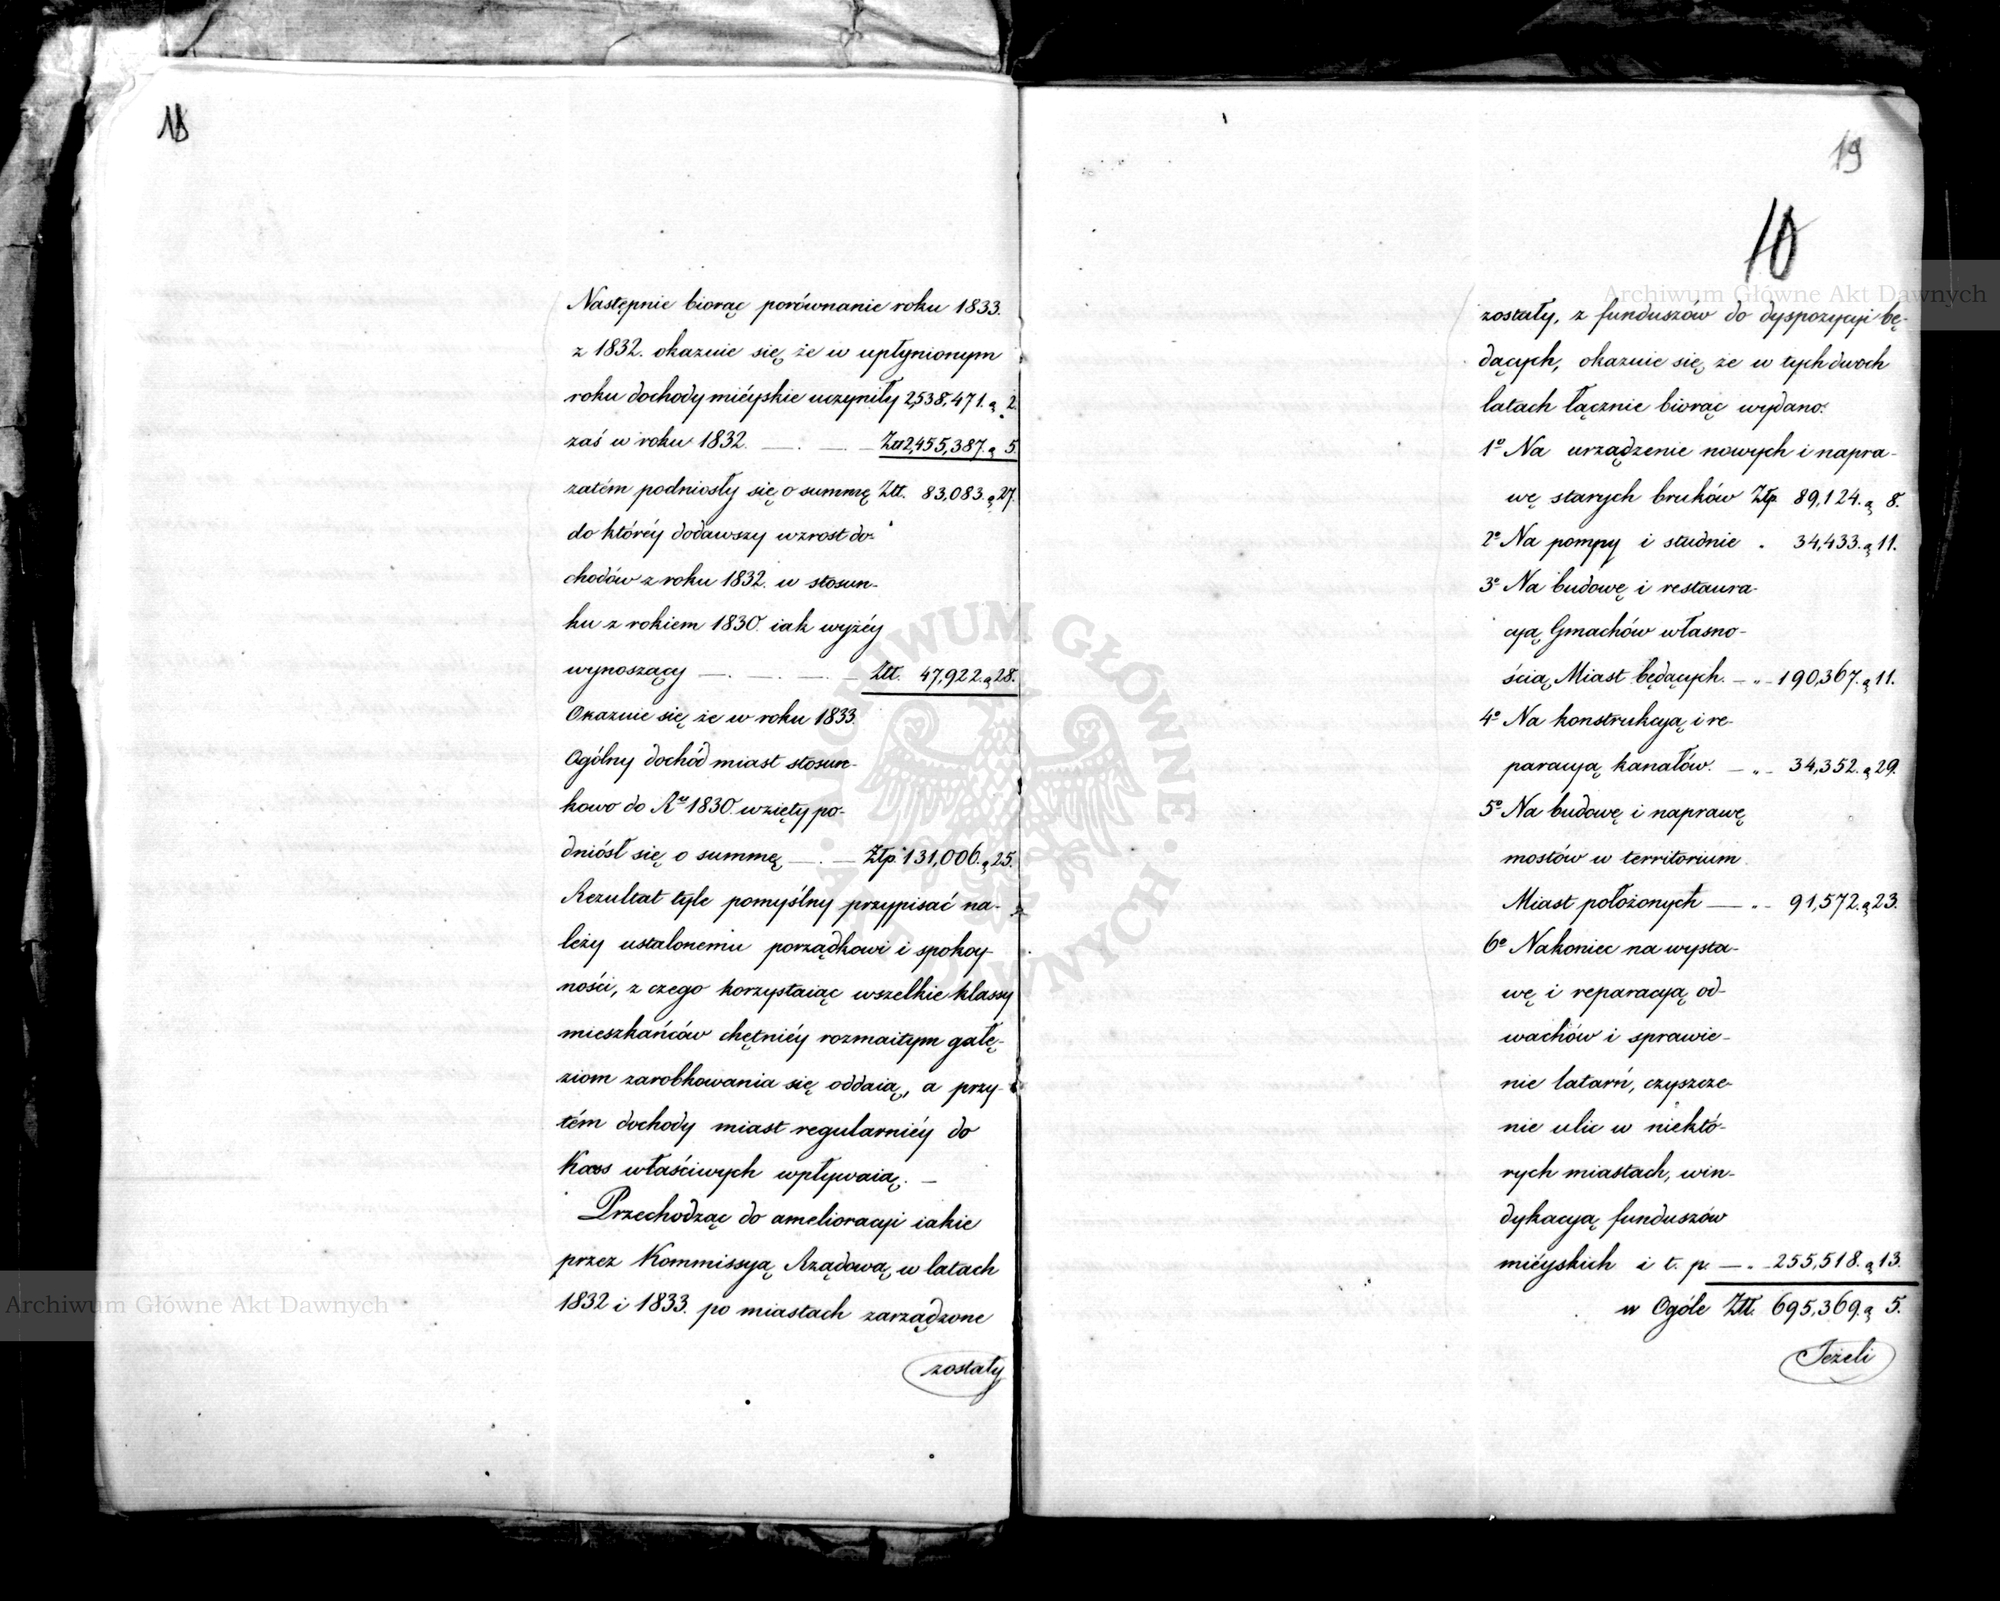 18
Następnie biorąc porównanie roku 1833.
z 1832. okazuie się że w upłynionym
roku dochody mieyskie uczyniły 2,538,471. g 2.
zaś w roku 1832. — . — . — Złł 2,455,387. g 5.
zatém podniosły się o summę Złł. 83,083. g 27.
do któréy dodawszy wzrost do-
chodów z roku 1832. w stosun-
ku z rokiem 1830. iak wyżéy
wynoszący — . — . — . — Złł. 47,922. g 28.
Okazuie się że w roku 1833
Ogólny dochód miast stosun-
kowo do Ru 1830. wzięty po-
dniósł się o summę — . — Złp. 131,006. g 25.
Rezultat tyle pomyślny przypisać na-
leży ustalonemu porządkowi i spokoy-
ności, z czego korzystaiąc wszelkie klassy
mieszkańców chętniéy rozmaitym gałę-
ziom zarobkowania się oddaią, a przy-
tém dochody miast regularniéy do
Kass właściwych wpływaią. —
Przechodząc do amelioracyi iakie
przez Kommissyą Rządową w latach
1832 i 1833. po miastach zarządzone
zostały
19
10
zostały, z funduszów do dyspozycyi bę-
dących, okazuie się że w tych dwóch
latach łącznie biorąc wydano:
1o Na urządzenie nowych i napra-
wę starych bruków Złp 89,124. g 8.
2o Na pompy i studnie . 34,433. g 11.
3o Na budowę i restaura-
cyą Gmachów własno-
ścią Miast będących. — „ - 190,367. g 11.
4o Na konstrukcyą i re-
paracyą kanałów. — „ - 34,352. g 29.
5o Na budowę i naprawę
mostów w territorium
Miast położonych — „ - 91,572. g 23.
6o Nakoniec na wysta-
wę i reparacyą od-
wachów i sprawie-
nie latarń, czyszcze-
nie ulic w niektó-
rych miastach, win-
dykacyą funduszów
miéyskich i t. p — „ - 255,518. g 13.
w Ogóle Złł. 695,369. g 5.
Jeżeli
Archiwum Główne Akt Dawnych
Archiwum Główne Akt Dawnych
· ARCHIWUM GŁÓWNE · AKT DAWNYCH